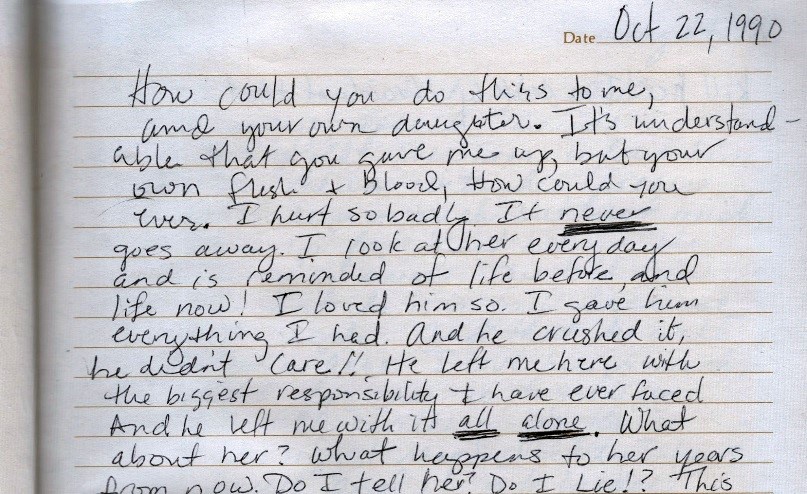 Date Oct 22, 1990
How could you do this to me,
and your own daughter. It's understand-
able that you gave me up, but your
own flesh & Blood, How could you
ever. I hurt so badly It never
goes away. I look at her every day
and is reminded of life before, and
life now! I loved him so. I gave him
everything I had. And he crushed it,
he didn't care!! He left me here with
the biggest responsibility I have ever faced
And he left me with it all alone. What
about her? What happens to her years
from now. Do I tell her? Do I Lie!? This